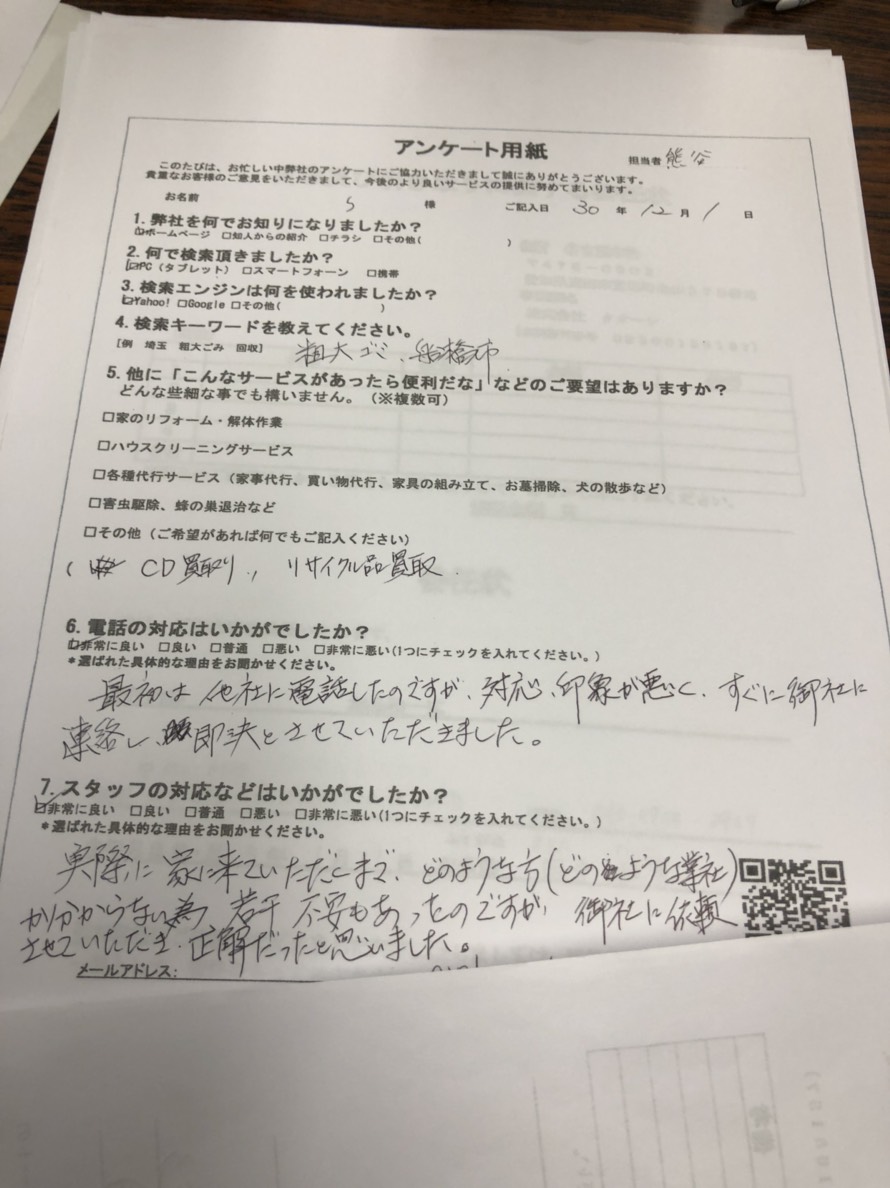 アンケート用紙
担当者 熊谷
このたびは、お忙しい中弊社のアンケートにご協力いただきまして誠にありがとうございます。
貴重なお客様のご意見をいただきまして、今後のより良いサービスの提供に努めてまいります。
お名前 S 様 ご記入日 30 年 12 月 1 日
1. 弊社を何でお知りになりましたか？
☑ホームページ □知人からの紹介 □チラシ □その他( )
2. 何で検索頂きましたか？
☑PC（タブレット） □スマートフォーン □携帯
3. 検索エンジンは何を使われましたか？
☑Yahoo! □Google □その他( )
4. 検索キーワードを教えてください。
[例 埼玉 粗大ごみ 回収] 粗大ゴミ、船橋市
5. 他に「こんなサービスがあったら便利だな」などのご要望はありますか？
どんな些細な事でも構いません。（※複数可）
□家のリフォーム・解体作業
□ハウスクリーニングサービス
□各種代行サービス（家事代行、買い物代行、家具の組み立て、お墓掃除、犬の散歩など）
□害虫駆除、蜂の巣退治など
□その他（ご希望があれば何でもご記入ください）
( CD買取り、リサイクル品買取
6. 電話の対応はいかがでしたか？
☑非常に良い □良い □普通 □悪い □非常に悪い(1つにチェックを入れてください。)
*選ばれた具体的な理由をお聞かせください。
最初は他社に電話したのですが、対応、印象が悪く、すぐに御社に
連絡し、即決とさせていただきました。
7. スタッフの対応などはいかがでしたか？
☑非常に良い □良い □普通 □悪い □非常に悪い(1つにチェックを入れてください。)
*選ばれた具体的な理由をお聞かせください。
実際に家に来ていただくまで、どのような方(どのような業社)
か分からない為 若干 不安もあったのですが 御社に依頼
させていただき、正解だったと思いました。
メールアドレス: